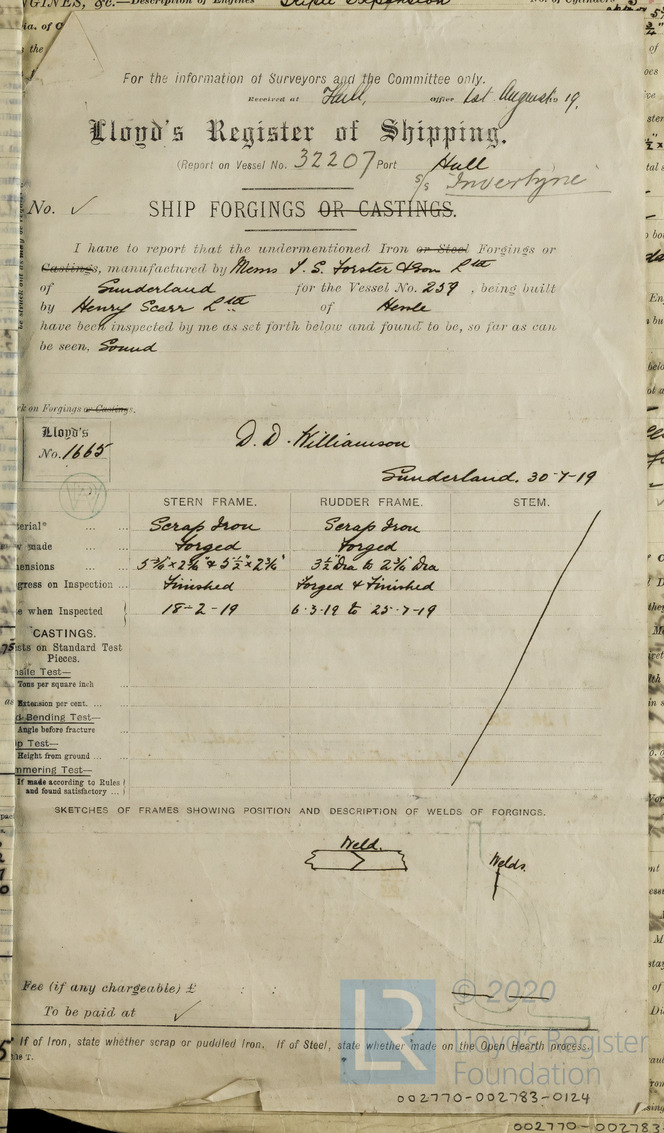 GINES, &c.—Description of Engines Triple Expansion No. of Cylinders
For the information of Surveyors and the Committee only.
Received at Hull, Office 1st August 19.
Lloyd's Register of Shipping.
(Report on Vessel No. 32207 Port Hull
S/S Invertyne
No. ✓ SHIP FORGINGS OR CASTINGS.
I have to report that the undermentioned Iron or Steel Forgings or
Castings, manufactured by Messrs T. S. Forster & Son Ltd
of Sunderland for the Vessel No. 259, being built
by Henry Scarr Ltd of Hessle
have been inspected by me as set forth below and found to be, so far as can
be seen, Sound
rk on Forgings or Castings.
Lloyd's
No. 1665
D. D. Williamson
Sunderland. 30-7-19
STERN FRAME. RUDDER FRAME. STEM.
terial* ... ... Scrap Iron Scrap Iron
w made ... Forged Forged
mensions ...
gress on Inspection ... Finished Forged & Finished
e when Inspected 18-2-19 6-3-19 to 25-7-19
CASTINGS.
sts on Standard Test
Pieces.
nsile Test—
Tons per square inch ...
Extension per cent. ... ...
d Bending Test—
Angle before fracture
p Test—
Height from ground ... ...
mmering Test—
If made according to Rules
and found satisfactory ...
SKETCHES OF FRAMES SHOWING POSITION AND DESCRIPTION OF WELDS OF FORGINGS.
Weld.
Welds.
Fee (if any chargeable) £ : :
To be paid at ✓
* If of Iron, state whether scrap or puddled Iron. If of Steel, state whether made on the Open Hearth process.
© 2020
LR Lloyd's Register
Foundation
002770-002783-0124
002770-002783-